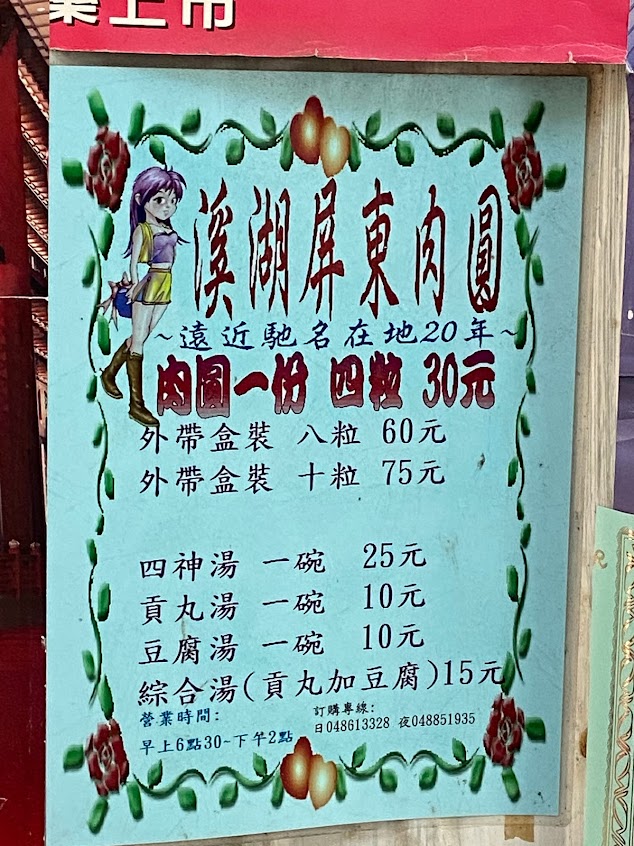 業上市
溪湖屏東肉圓
~遠近馳名在地20年~
肉圓一份 四粒 30元
外帶盒裝 八粒 60元
外帶盒裝 十粒 75元
四神湯 一碗 25元
貢丸湯 一碗 10元
豆腐湯 一碗 10元
綜合湯(貢丸加豆腐)15元
營業時間:
早上6點30~下午2點
訂購專線:
日048613328 夜048851935